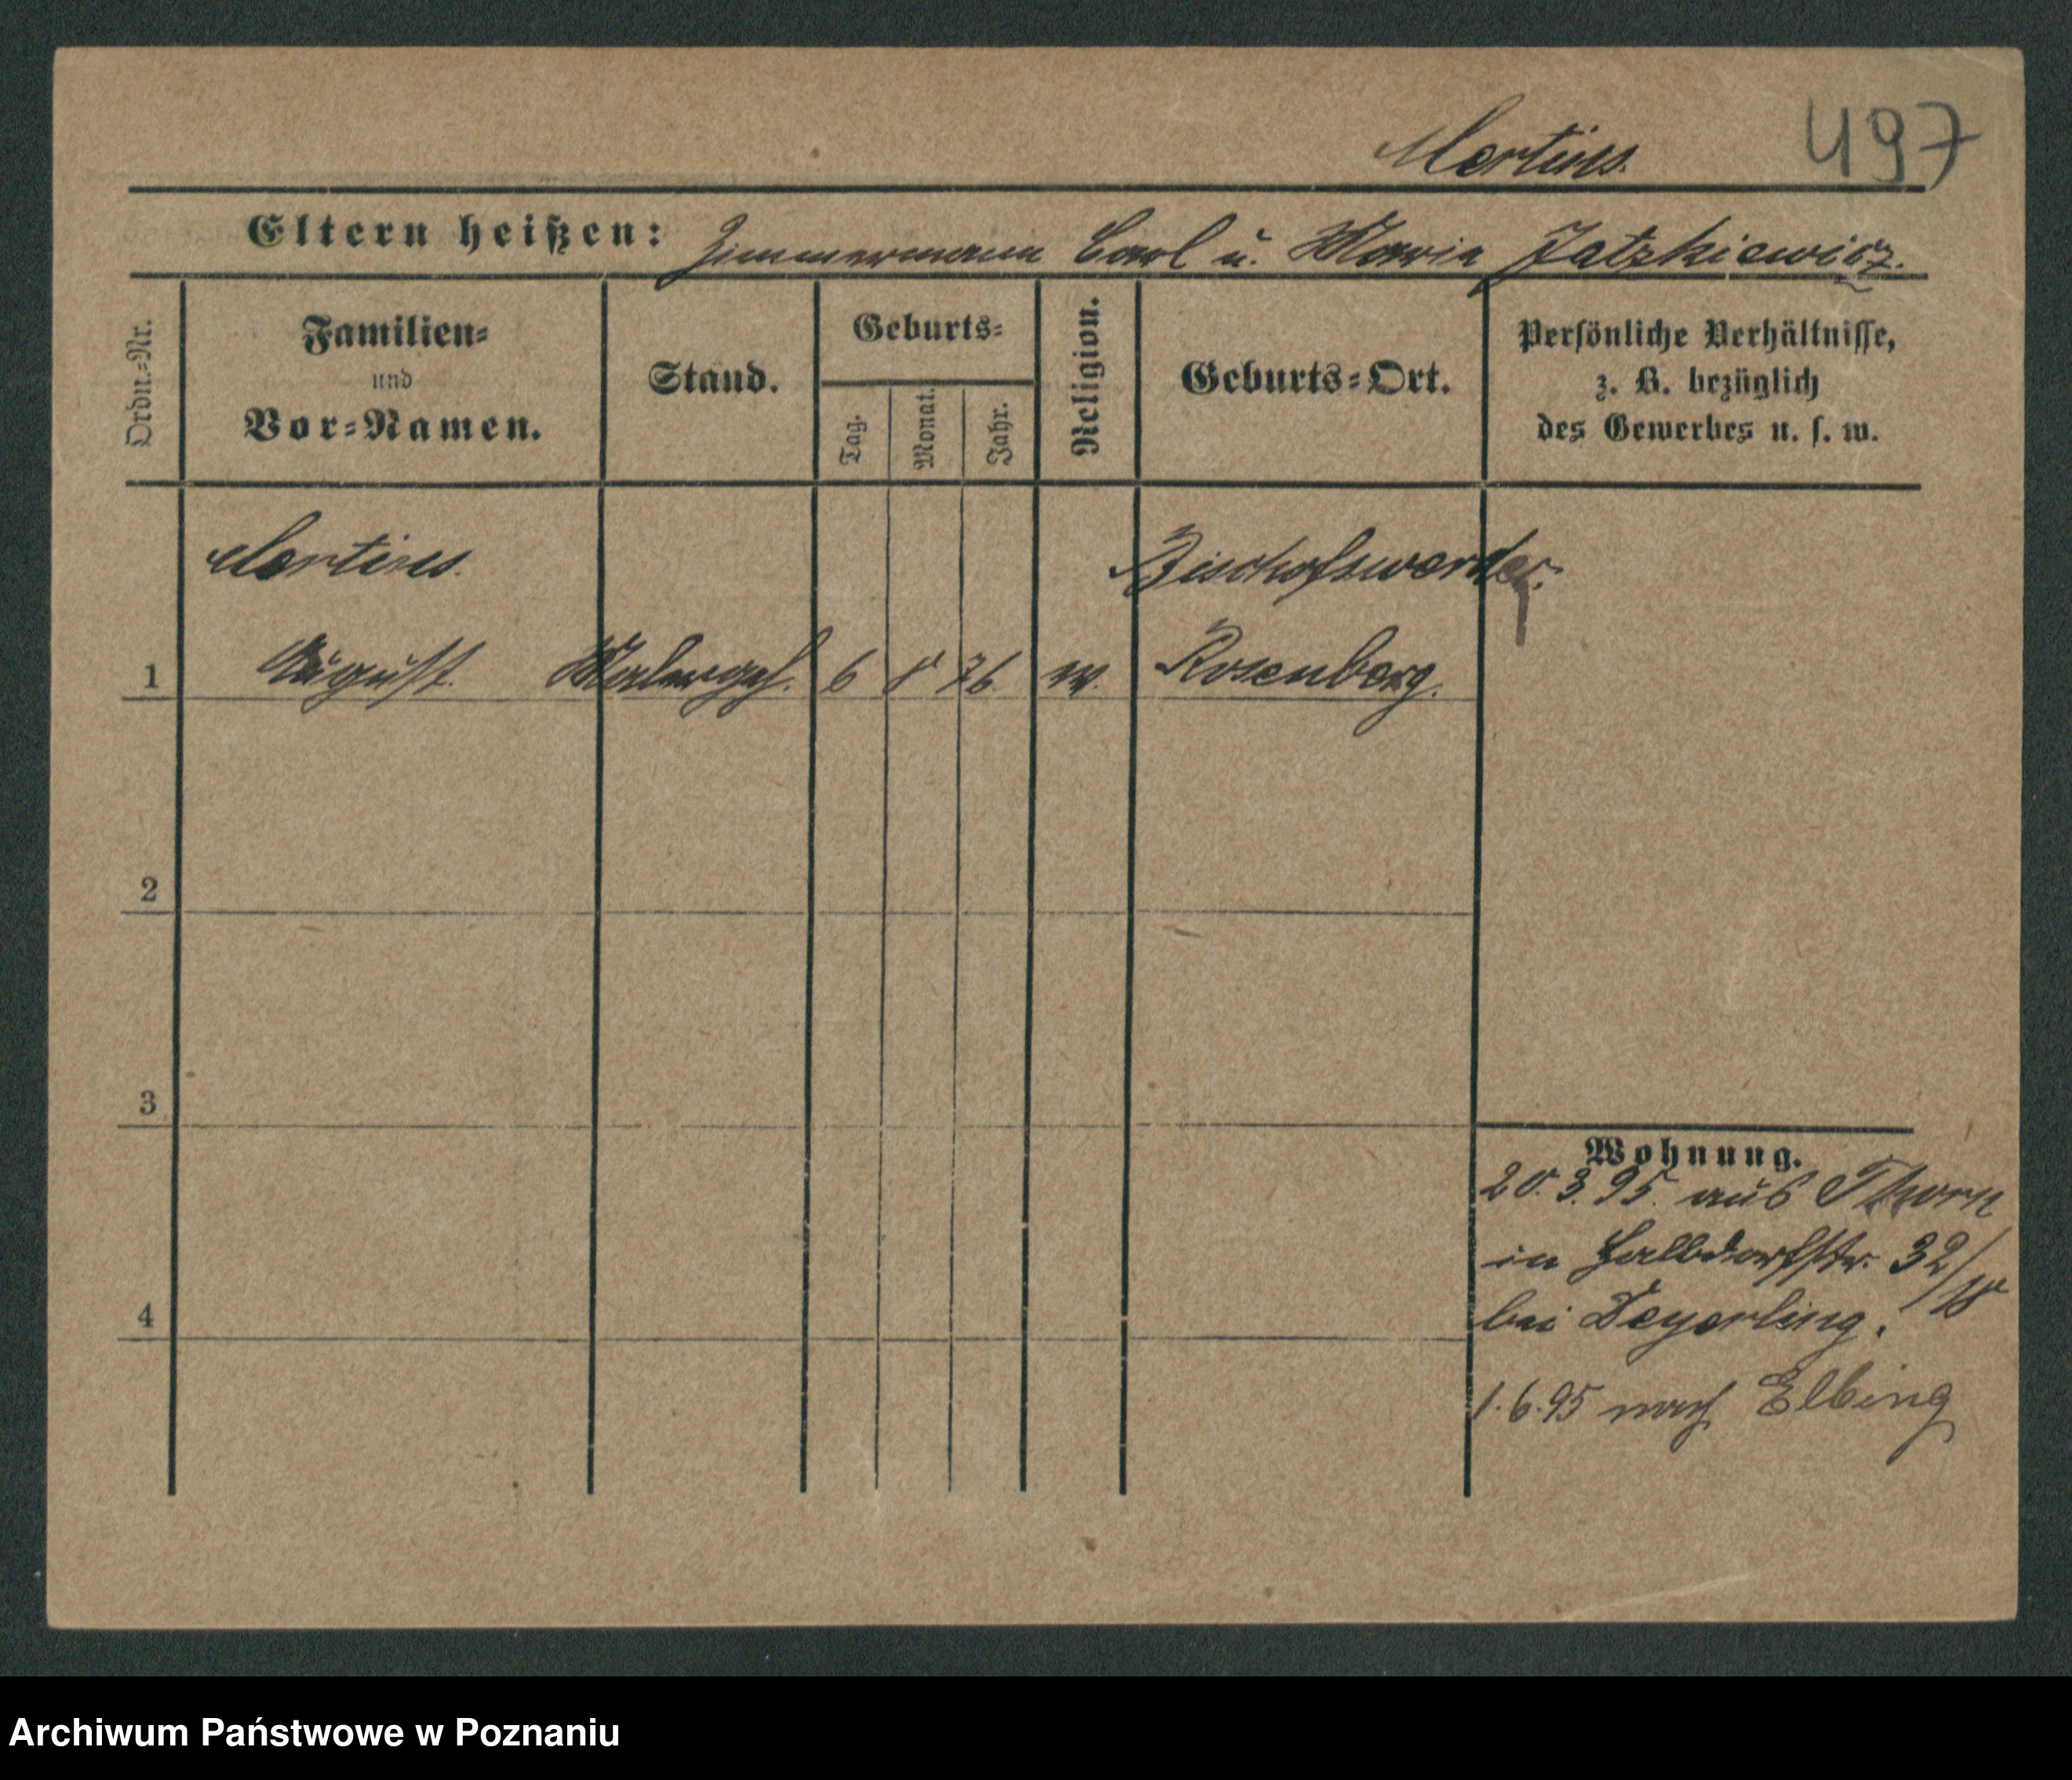 Mertins.
497
Eltern heißen: Zimmermann Carl u. Maria Jatzkiewicz.
Ordn.-Nr.
Familien-
und
Vor-Namen.
Stand.
Geburts-
Tag.
Monat.
Jahr.
Religion.
Geburts-Ort.
Persönliche Verhältnisse,
z. B. bezüglich
des Gewerbes u. s. w.
Mertins. Bischofswerder.
1 August Malergeh. 6 8 76 Rosenberg.
2
3
Wohnung.
20.3.95. aus Thorn
in Halbdorfstr. 32/
4
bei Deyerling.
1.6.95 nach Elbing
Archiwum Państwowe w Poznaniu